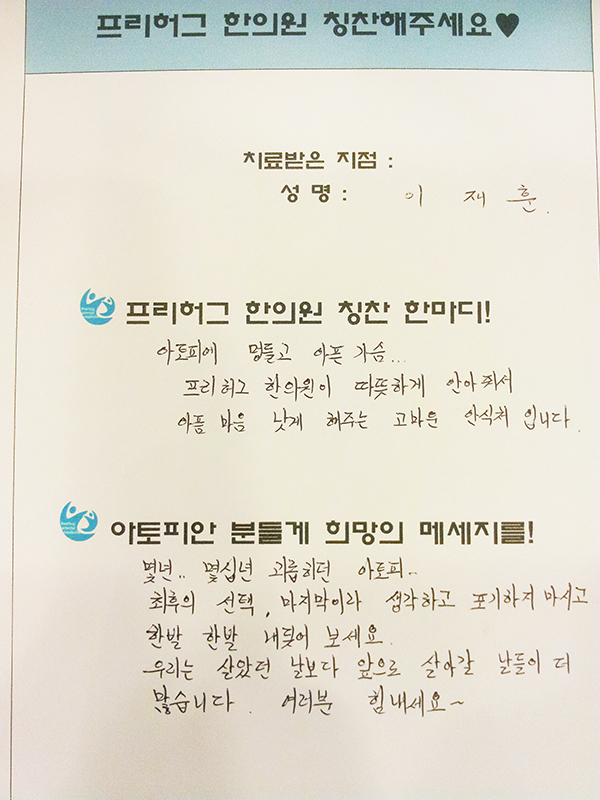 프리허그 한의원 칭찬해주세요♥
치료받은 지점 :
성 명 : 이 재 훈.
프리허그 한의원 칭찬 한마디!
아토피에 멍들고 아픈 가슴...
프리허그 한의원이 따뜻하게 안아줘서
아픔 마음 낫게 해주는 고마운 안식처 입니다.
아토피안 분들게 희망의 메세지를!
몇년.. 몇십년 괴롭히던 아토피~
최후의 선택, 마지막이라 생각하고 포기하지 마시고
한발 한발 내딪어 보세요.
우리는 살았던 날보다 앞으로 살아갈 날들이 더
많습니다. 여러분 힘내세요~